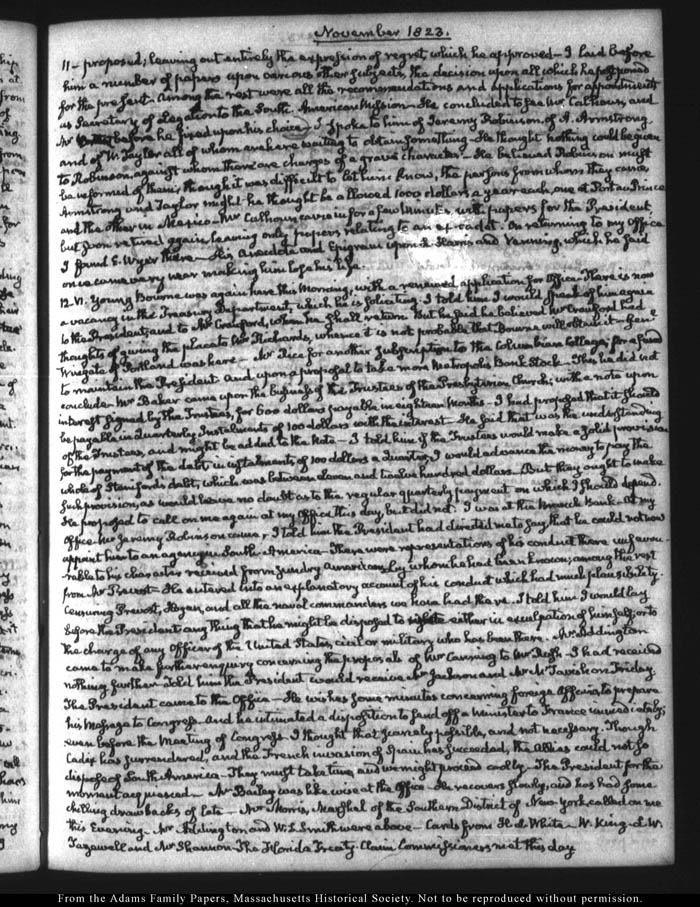 November 1823.
11 – proposed; leaving out entirely the expression of regret which he approved – I laid before
him a number of papers upon various other subjects, the decision upon all which he postponed
for the present. Among the rest were all the recommendations and applications for appointments
as Secretary of Legation to the South American Mission – He concluded to see Mr Calhoun, and
Mr before he fixed upon his choice – I spoke to him of Jeremy Robinson, of A. Armstrong
and of W. Taylor all of whom are here waiting to obtain something – He thought nothing could be given
to Robinson, against whom there are charges of a grave character – He believed Robinson must
be informed of them; though it was difficult to let him know, the persons from whom they came,
Armstrong and Taylor might he thought be allowed 1000 dollars a year each, one at Port au Prince
and the other in Mexico. Mr Calhoun came in for a few minutes with papers for the President,
but soon retired again, leaving only papers relating to an ex-cadet. On returning to my Office
I found E. Wyer there – His Anecdote and Epigram upon L. Harris and Venning, which he said
once came very near making him lose his life.
12. VI. Young Bourne was again here this Morning, with a renewed application for Office. There is now
a vacancy in the Treasury Department, which he is soliciting. I told him I would speak of him again
to the President, and to Mr Crawford, when he shall return. But he said he believed Mr Crawford had
thoughts of giving the place to Mr Richards, whence it is not probable that Bourne will obtain it – Genl
Wingate of Portland was here – Mr Rice for another subscription to the Columbian College; for a fund
to maintain the President and upon a proposal to take more Metropolis Bank Stock. This he did not
conclude. Mr Baker came upon the business of the Trustees of the Presbyterian Church; with a note upon
interest signed by the Trustees, for 600 dollars payable in eighteen Months – I had proposed that it should
be payable in Quarterly Instalments of 100 dollars with the interest – He said that was the understanding
of the Trustees, and might be added to the Note – I told him if the Trustees would make a solid provision
for the payment of the debt in instalments of 100 dollars a Quarter, I would advance the money to pay the
whole of Staniford's debt, which was between eleven and twelve hundred dollars. But they ought to make
such provision, as would leave no doubt as to the regular quarterly payment on which I should depend.
He proposed to call on me again at my Office this day, but did not. I was at the Branch Bank. At my
Office Mr Jeremy Robinson came, & I told him the President had directed me to say, that he could not now
appoint him to an agency in South-America – There were representations of his conduct there unfavou-
rable to his character received from sundry Americans, by whom he had been known; among the rest
from Mr Prevost – He entered into an explanatory account of his conduct which had much plausibility.
Censuring Prevost, Hogan, and all the naval commanders we have had there. I told him I would lay
before the President any thing that he might be disposed to either in exculpation of himself, or to
the charge of any Officer of the United States, civil or military who has been there. Mr Addington
came to make further enquiry concerning the proposals of Mr Canning to Mr Rush – I had received
nothing further – Told him the President would receive Mr Jackson and Mr McTavish on Friday.
The President came to the Office – He wishes some minutes concerning foreign Affairs, to prepare
his Message to Congress. And he intimated a disposition to send off a Minister to France immediately;
even before the Meeting of Congress. I thought that scarcely possible, and not necessary. Though
Cadiz has surrendered, and the French invasion of Spain has succeeded, the Allies could not so
dispose of South America – They must take time, and we might proceed coolly. The President for the
moment acquiesced. Mr Bailey was likewise at the Office. He recovers slowly, and has had some
chilling drawbacks of late – Mr Morris, Marshal of the Southern District of New-York called on me
this Evening. Mr Addington and W. L. Smith were above – Cards from H. L. White – W. King – L. W.
Tazewell and Mr Shannon – The Florida Treaty-Claim Commissioners met this day
From the Adams Family Papers, Massachusetts Historical Society. Not to be reproduced without permission.